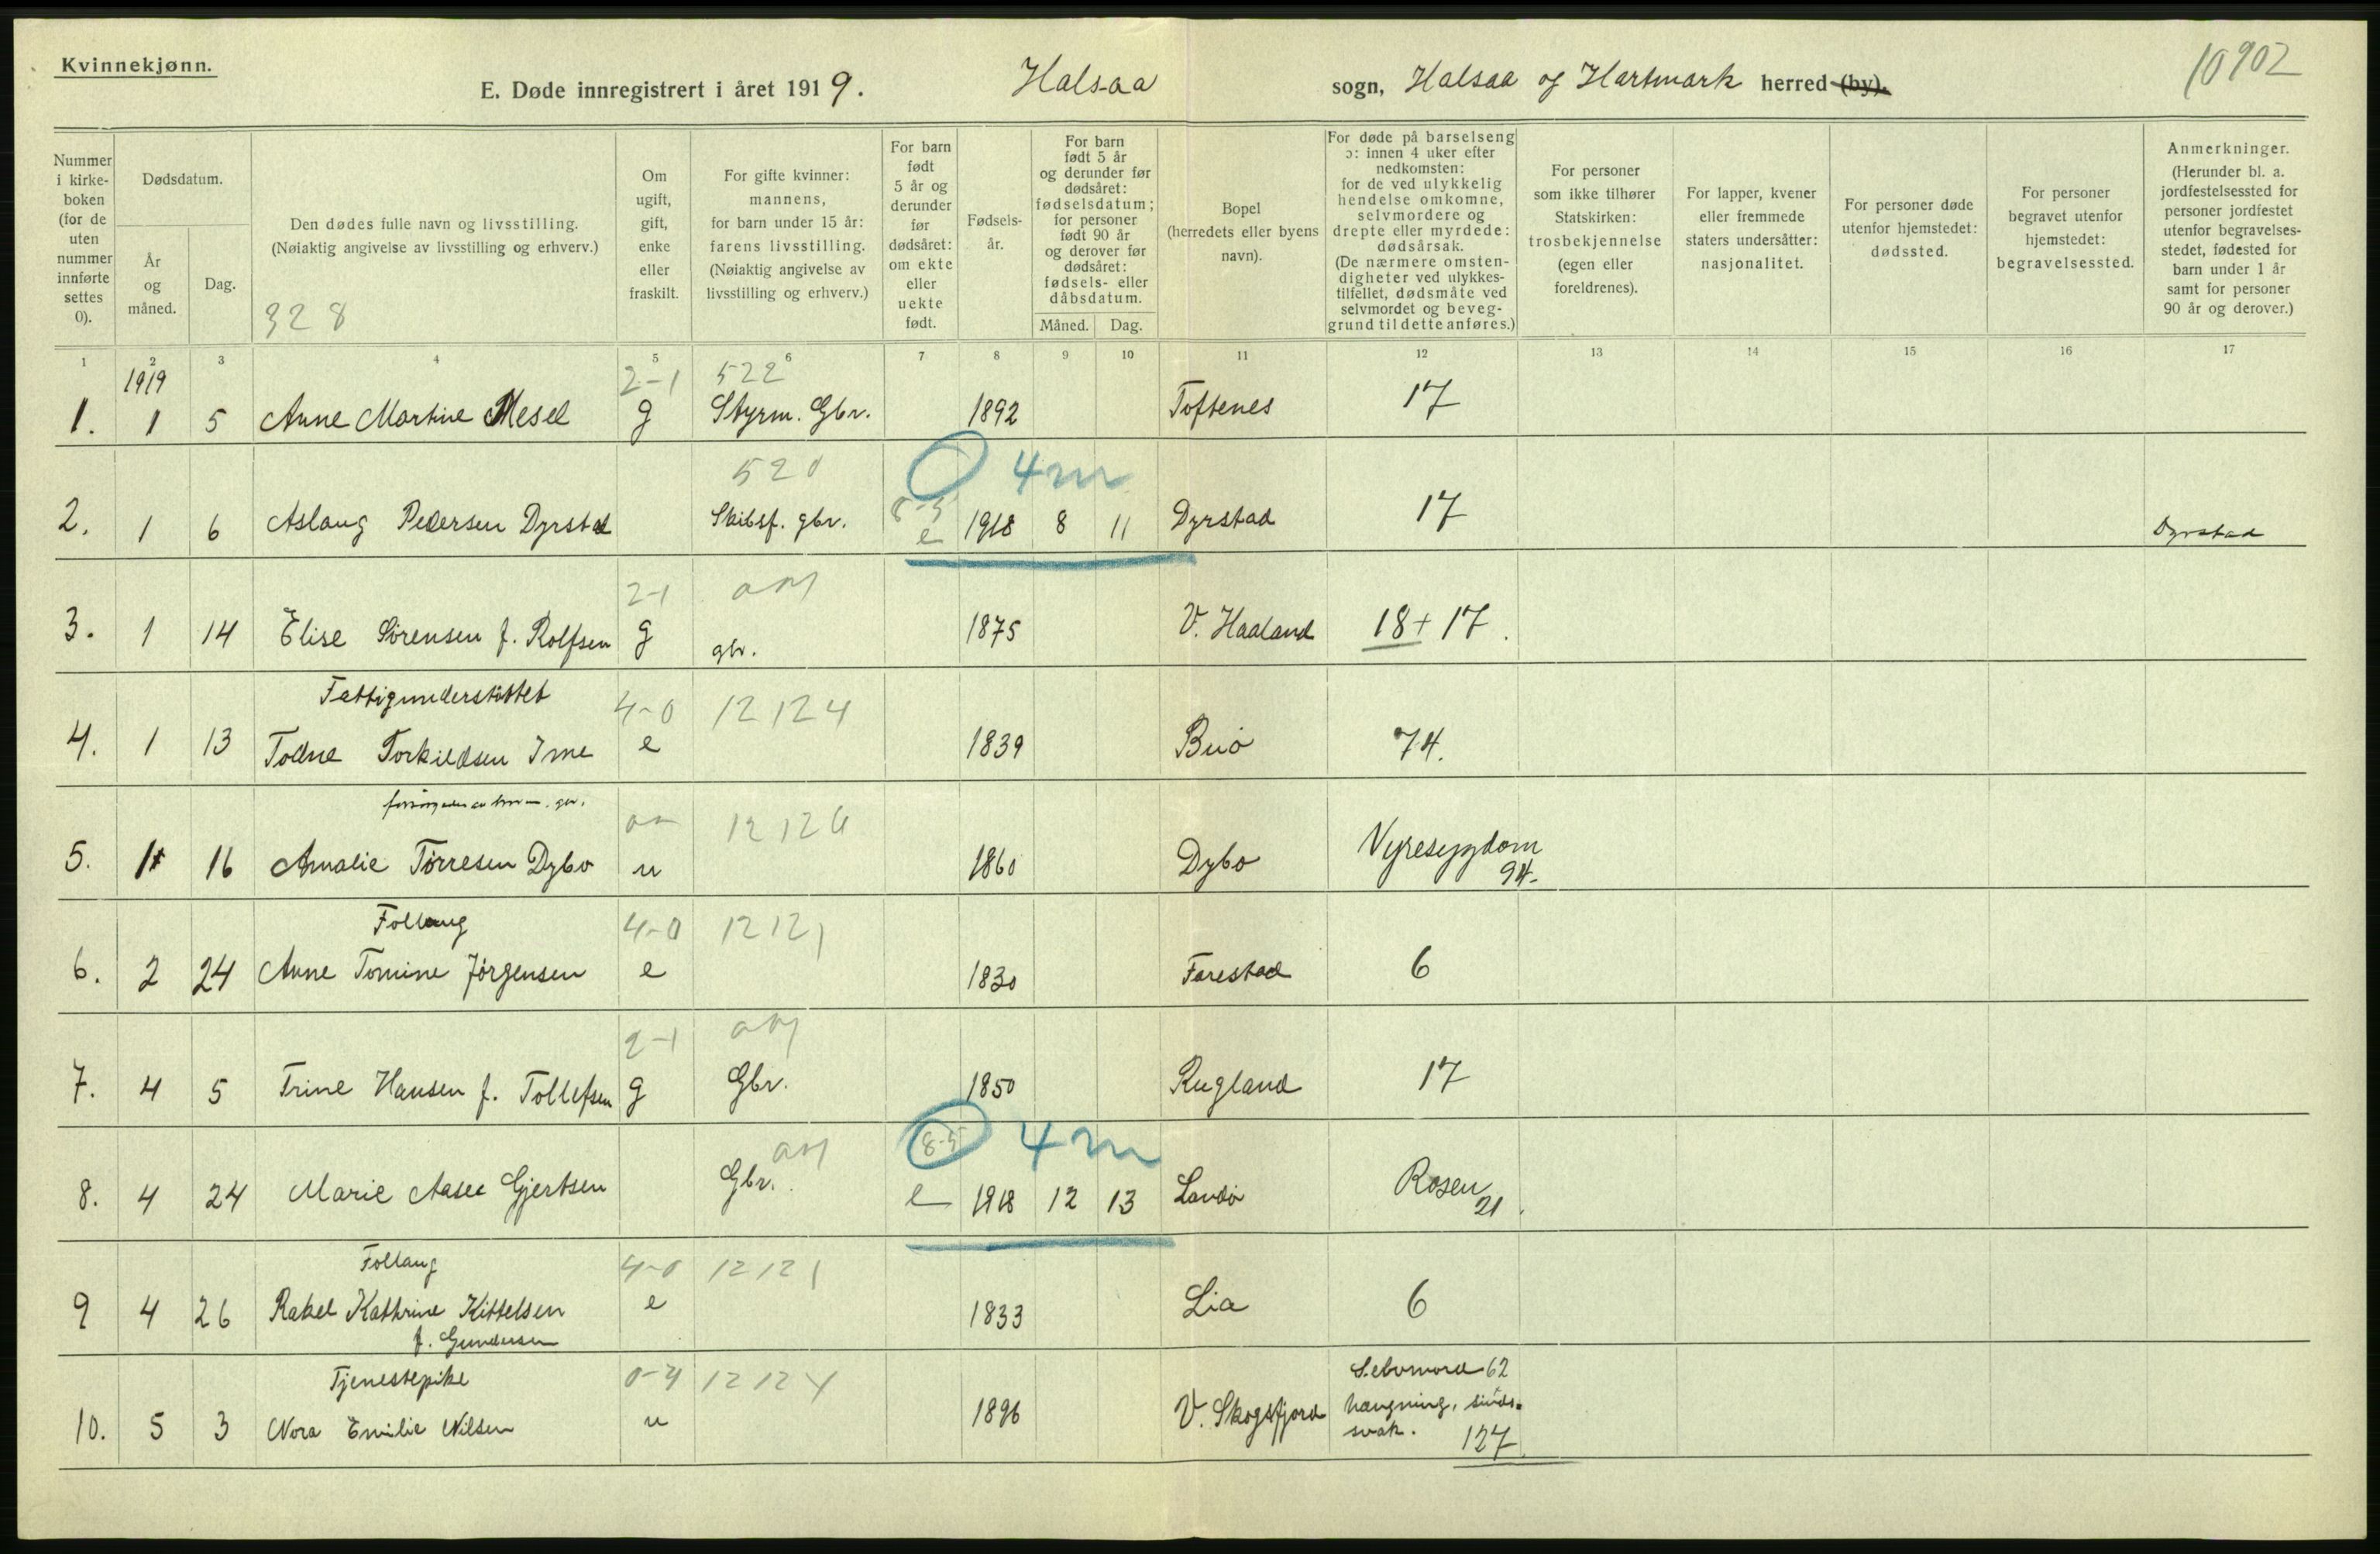 Kvinnekjønn.
E. Døde innregistrert i året 1919. Halsaa sogn, Halsaa og Hartmark herred (by).
10902
Nummer i kirke-boken (for de uten nummer innførte settes 0).
Dødsdatum.
År og måned.
Dag.
Den dødes fulle navn og livsstilling.
(Nøiaktig angivelse av livsstilling og erhverv.)
328
Om ugift, gift, enke eller fraskilt.
For gifte kvinner: mannens, for barn under 15 år: farens livsstilling. (Nøiaktig angivelse av livsstilling og erhverv.)
For barn født 5 år og derunder før dødsåret: om ekte eller uekte født.
Fødsels-år.
For barn født 5 år og derunder før dødsåret: fødselsdatum; for personer født 90 år og derover før dødsåret: fødsels- eller dåbsdatum.
Måned. Dag.
Bopel (herredets eller byens navn).
For døde på barselseng ɔ: innen 4 uker efter nedkomsten: for de ved ulykkelig hendelse omkomne, selvmordere og drepte eller myrdede: dødsårsak. (De nærmere omsten-digheter ved ulykkes-tilfellet, dødsmåte ved selvmordet og beveg-grund til dette anføres.)
For personer som ikke tilhører Statskirken: trosbekjennelse (egen eller foreldrenes).
For lapper, kvener eller fremmede staters undersåtter: nasjonalitet.
For personer døde utenfor hjemstedet: dødssted.
For personer begravet utenfor hjemstedet: begravelsessted.
Anmerkninger. (Herunder bl. a. jordfestelsessted for personer jordfestet utenfor begravelses-stedet, fødested for barn under 1 år samt for personer 90 år og derover.)
1 2 3 4 5 6 7 8 9 10 11 12 13 14 15 16 17
1919 2-1 522
1. 1 5 Anne Martine Mesel g Styrm. Gbr. 1892 Toftenes 17
520 4m
8-5
2. 1 6 Aslaug Pedersen Dyrstad Skibsf. gbr. e 1918 8 11 Dyrstad 17 Dyrstad
2-1
3. 1 14 Elise Sørensen f. Rolfsen g gbr. 1875 V. Haaland 18 + 17.
Fattigunderstøttet 4-0 12124
4. 1 13 Todne Torkildsen Ime e 1839 Buø 74.
5. 1 16 Amalie Tørresen Dybo u 1860 Dybo Nyresygdom
94.
Follaug 4-0 12121
6. 2 24 Anne Tomine Jørgensen e 1830 Farestad 6
2-1
7. 4 5 Trine Hansen f. Tollefsen g Gbr. 1850 Rugland 17
8-5 4m
8. 4 24 Marie Aasee Gjertsen Gbr. e 1918 12 13 Landø Rosen
21.
Follaug 4-0 12121
9 4 26 Rakel Kathrine Kittelsen e 1833 Lia 6
f. Gundersen
Tjenestepike 0-4 12124 62
10. 5 3 Nora Emilie Nilsen u 1896 V. Skogsfjord hængning, sinds-
svak. 127.